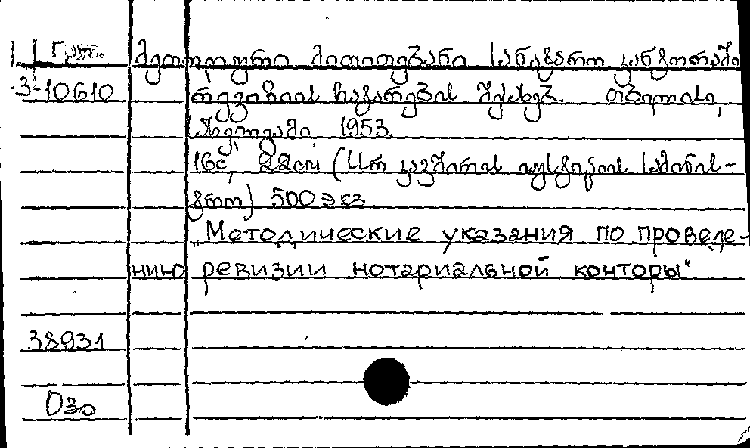 Груз. მეთოდური მითითებანი სანოტარო კანტორაში
3-10610 რევიზიის ჩატარების შესახებ. თბილისი,
1953
16с, 22см (სსრ კავშირის იუსტიციის სამინის-
ტრო) 500 экз
„Методические указания по проведе-
нию ревизии нотариальной конторы"
38931